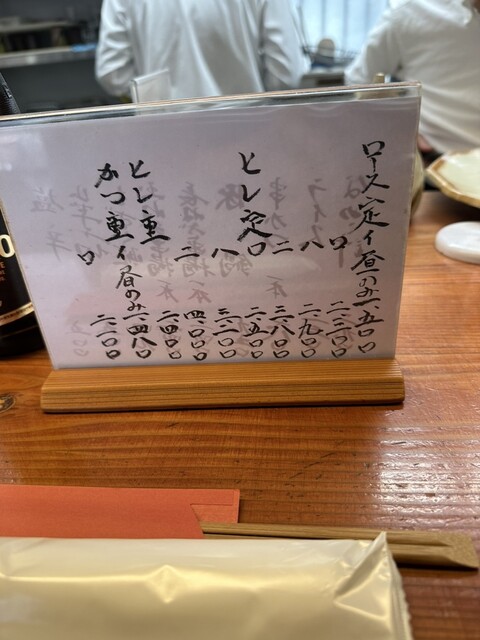 ロース定イ昼のみ一、五〇〇
ロ 二、三〇〇
ハ 二、九〇〇
二 三、八〇〇
ヒレ定ロ 二、五〇〇
ハ 三、二〇〇
二 四、〇〇〇
ヒレ重 二、四〇〇
かつ重イ昼のみ一、四八〇
ロ